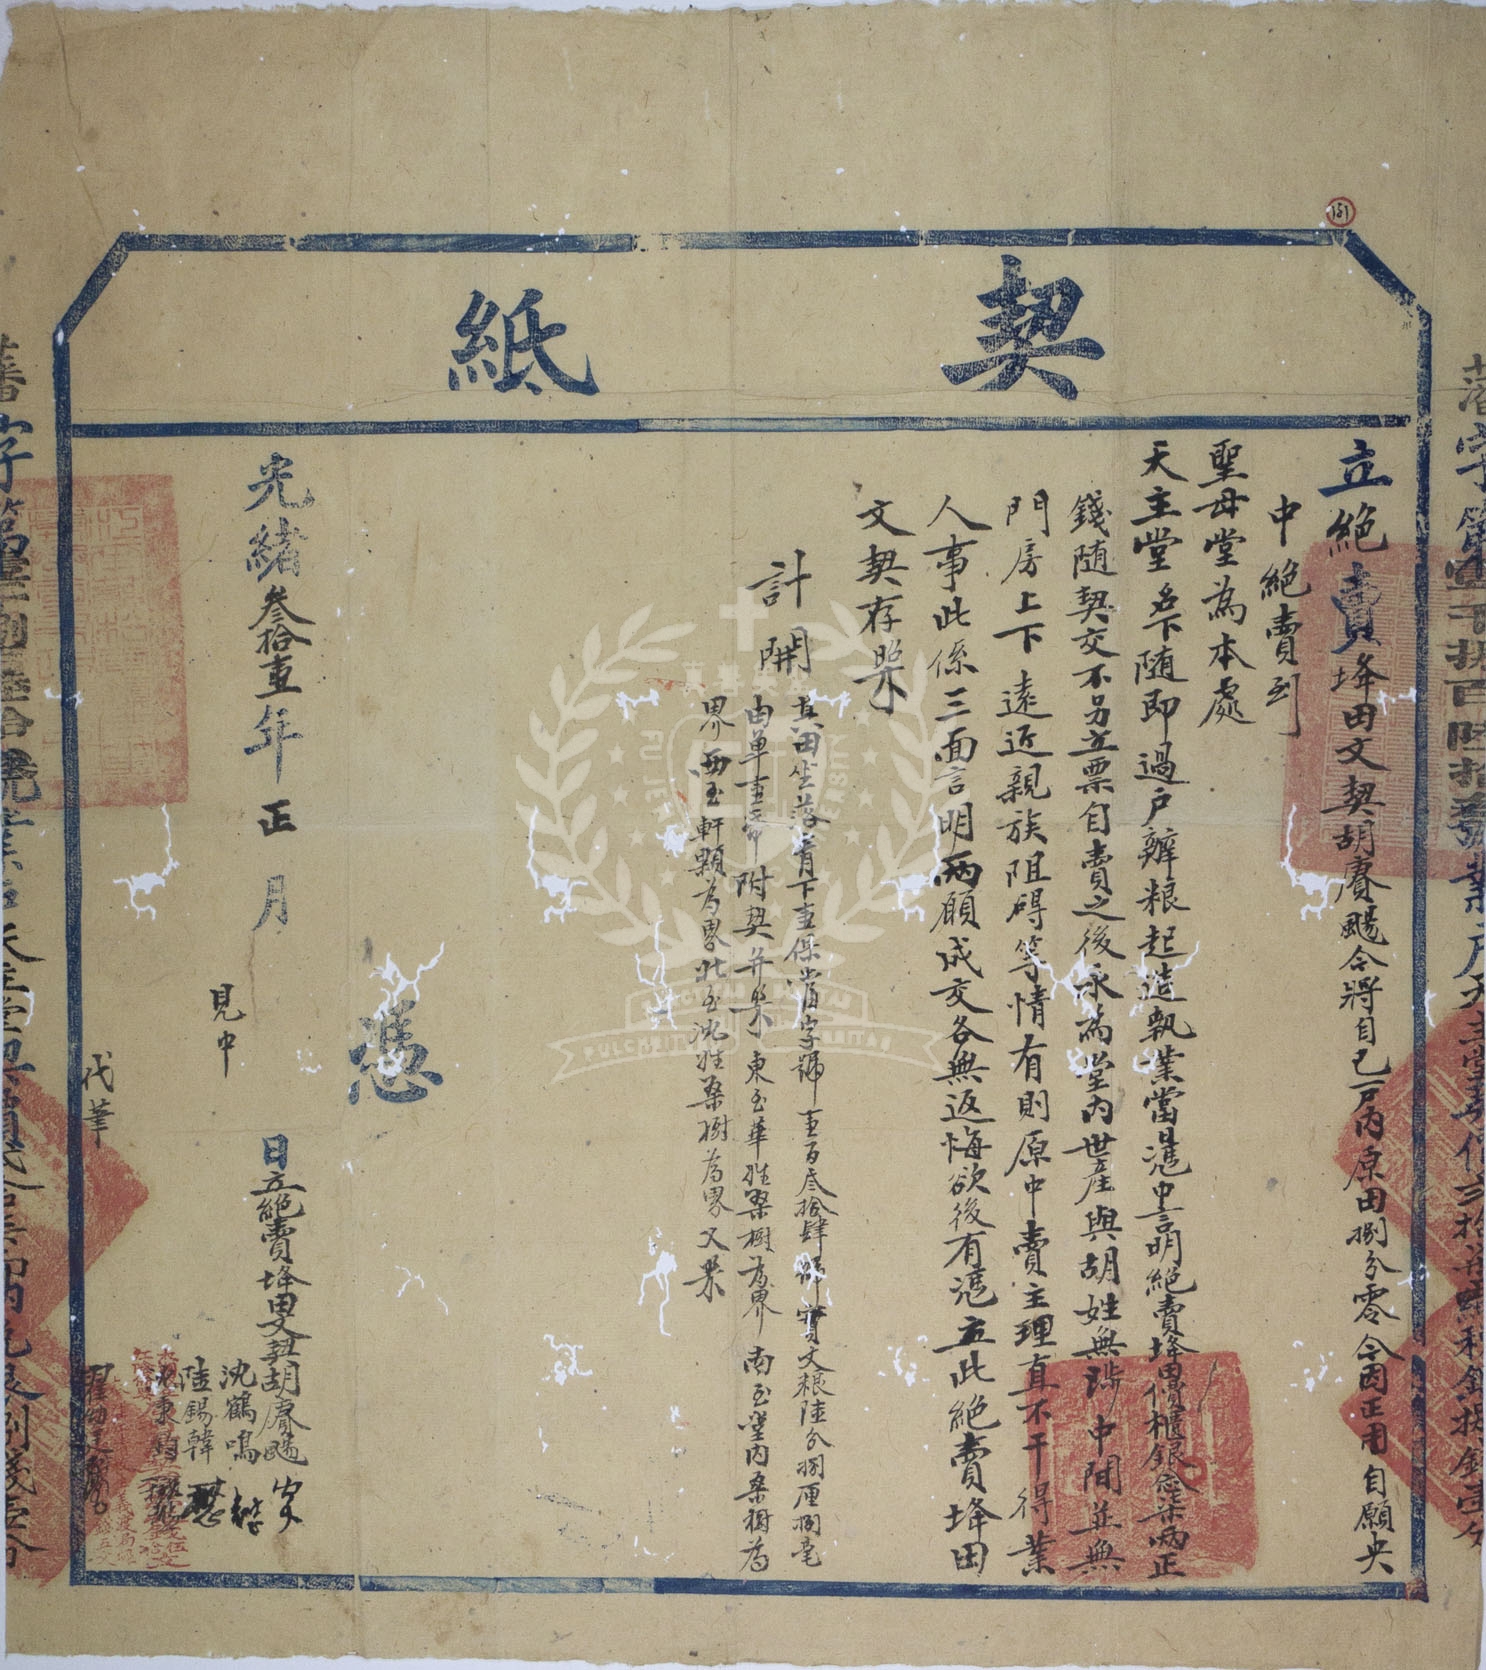 契紙
立絕賣埄田文契胡賡颺今將自己戶內原田捌分零今因正用自願央
中絕賣到
聖母堂為本處
天主堂名下隨即過戶辦粮起造執業當日憑中言明絕賣埄田價櫃銀柒兩正
錢隨契交不另立票自賣之後永為堂內世産與胡姓無涉中間並無
門房上下遠近親族阻碍等情有則原中賣主理直不干得業
人事此係三面言明兩願成交各無返悔欲後有憑立此絕賣埄田
文契存照
計開
其田坐落下壹保字號壹百叁拾肆號實文粮陸分捌厘捌毫
由單壹帋附契并照東至華姓桑樹為界南至堂內桑樹為
界西至軒顆為界北至沈姓桑樹為界又照
憑
光緒叁拾壹年正月日立絕賣埄田文契胡賡颺
見中
沈鶴鳴
陸錫韓
代筆
藩字第
業戶天主堂